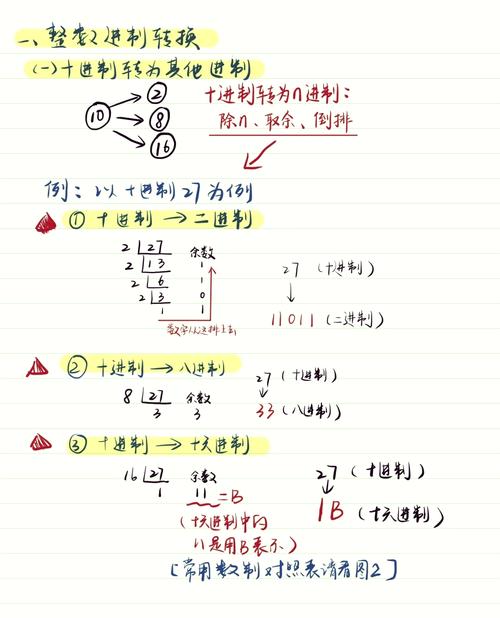 一、整数进制转换
(一)十进制转为其他进制
10 2 8 16
十进制转为n进制:
除n、取余、倒排
例:以十进制27为例
① 十进制 → 二进制
2 27 余数
2 13 1
2 6 1
2 3 0
1 1
数字从这排上去
27 (十进制)
11011 (二进制)
② 十进制 → 八进制
8 27 余数
3 3
27 (十进制)
33 (八进制)
③ 十进制 → 十六进制
16 27 余数
1 11 = B
(十六进制中的
11是用B表示)
27 (十进制)
1B (十六进制)
[常用数制对照表请看图2]